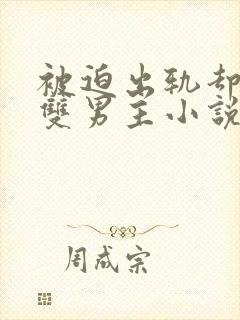 被迫出轨却
雙男主小說
周成宗